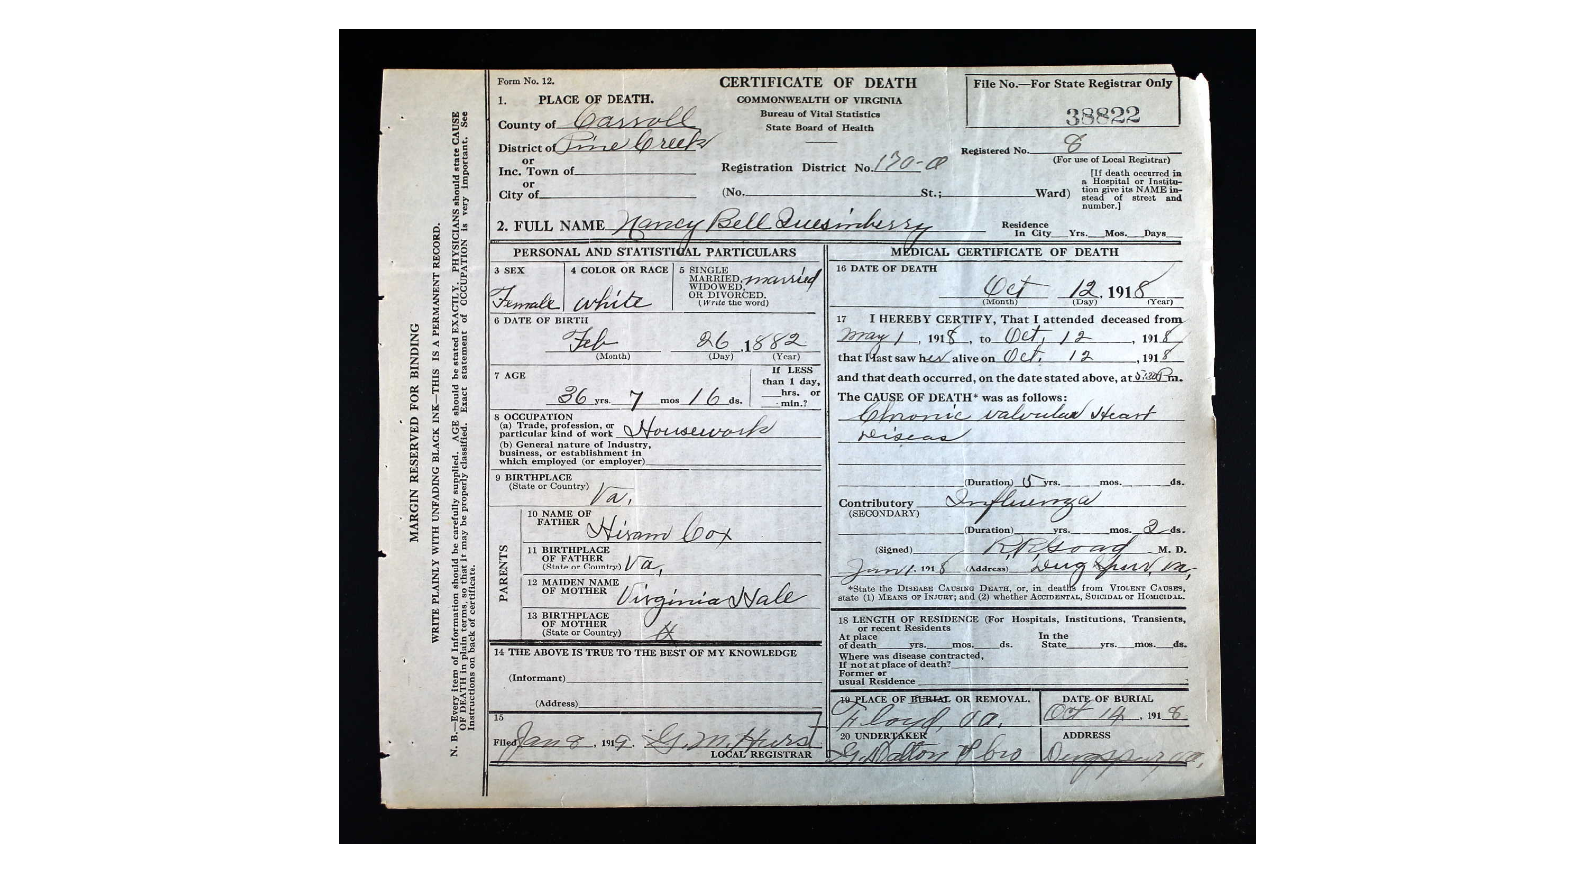 MARGIN RESERVED FOR BINDING
WRITE PLAINLY WITH UNFADING BLACK INK—THIS IS A PERMANENT RECORD.
N. B.—Every item of Information should be carefully supplied. AGE should be stated EXACTLY. PHYSICIANS should state CAUSE
OF DEATH in plain terms, so that it may be properly classified. Exact statement of OCCUPATION is very important. See
Instructions on back of certificate.
Form No. 12.
CERTIFICATE OF DEATH
COMMONWEALTH OF VIRGINIA
Bureau of Vital Statistics
State Board of Health
File No.—For State Registrar Only
38822
1. PLACE OF DEATH.
County of Carroll
District of Pine Creek
or
Inc. Town of
or
City of
Registration District No. 170-a
Registered No. 8
(For use of Local Registrar)
(No. St.; Ward)
[If death occurred in
a Hospital or Institu-
tion give its NAME in-
stead of street and
number.]
2. FULL NAME Nancy Bell Quesinberry
Residence
In City Yrs. Mos. Days
PERSONAL AND STATISTICAL PARTICULARS
3 SEX
Female
4 COLOR OR RACE
White
5 SINGLE
MARRIED,
WIDOWED,
OR DIVORCED.
(Write the word)
married
6 DATE OF BIRTH
Feb 26, 1882
(Month) (Day) (Year)
7 AGE
36 yrs. 7 mos 16 ds.
If LESS
than 1 day,
hrs. or
min.?
8 OCCUPATION
(a) Trade, profession, or
particular kind of work Housework
(b) General nature of Industry,
business, or establishment in
which employed (or employer)
9 BIRTHPLACE
(State or Country) Va,
PARENTS
10 NAME OF
FATHER Hiram Cox
11 BIRTHPLACE
OF FATHER
(State or Country) Va,
12 MAIDEN NAME
OF MOTHER Virginia Hale
13 BIRTHPLACE
OF MOTHER
(State or Country)
14 THE ABOVE IS TRUE TO THE BEST OF MY KNOWLEDGE
(Informant)
(Address)
15
Filed Jan 8, 1919. G. M. Hurst
LOCAL REGISTRAR
MEDICAL CERTIFICATE OF DEATH
16 DATE OF DEATH
Oct 12, 1918
(Month) (Day) (Year)
17 I HEREBY CERTIFY, That I attended deceased from
May 1, 1918, to Oct, 12, 1918
that I last saw her alive on Oct. 12, 1918
and that death occurred, on the date stated above, at m.
The CAUSE OF DEATH* was as follows:
Chronic valvular Heart
Diseas
(Duration) 5 yrs. mos. ds.
Contributory Influenza
(SECONDARY)
(Duration) yrs. mos. 2 ds.
(Signed) R.R. Goad M. D.
Jan 1. 1918 (Address) Dug Spur, Va,
*State the DISEASE CAUSING DEATH, or, in deaths from VIOLENT CAUSES,
state (1) MEANS OF INJURY; and (2) whether ACCIDENTAL, SUICIDAL OR HOMICIDAL.
18 LENGTH OF RESIDENCE (For Hospitals, Institutions, Transients,
or recent Residents
At place of death yrs. mos. ds. In the State yrs. mos. ds.
Where was disease contracted,
If not at place of death?
Former or
usual Residence
19 PLACE OF BURIAL OR REMOVAL.
Floyd, Va.
DATE OF BURIAL
Oct 14, 1918
20 UNDERTAKER
G. Dalton & bro
ADDRESS
Dugspur, Va,